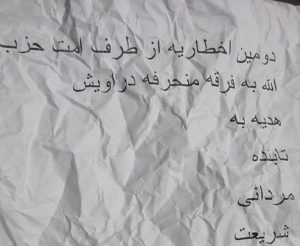 دومین اخطاریه از طرف امت حزب
الله به فرقه منحرفه دراویش
هدیه به
تابنده
مردانی
شریعت